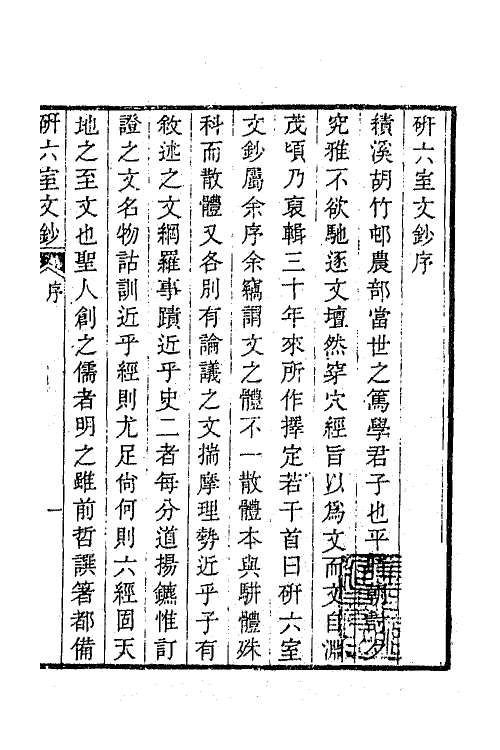 硏六室文鈔序
績溪胡竹邨農部當世之篤學君子也平
究雅不欲馳逐文壇然穿穴經旨以爲文而文自淵
茂頃乃裒輯三十年來所作擇定若干首曰硏六室
文鈔屬余序余竊謂文之體不一散體本與駢體殊
科而散體又各別有論議之文揣摩理勢近乎子有
敘述之文綱羅事蹟近乎史二者每分道揚鑣惟訂
證之文名物詁訓近乎經則尤足尙何則六經固天
地之至文也聖人創之儒者明之雖前哲譔箸都備
硏六室文鈔 序 一